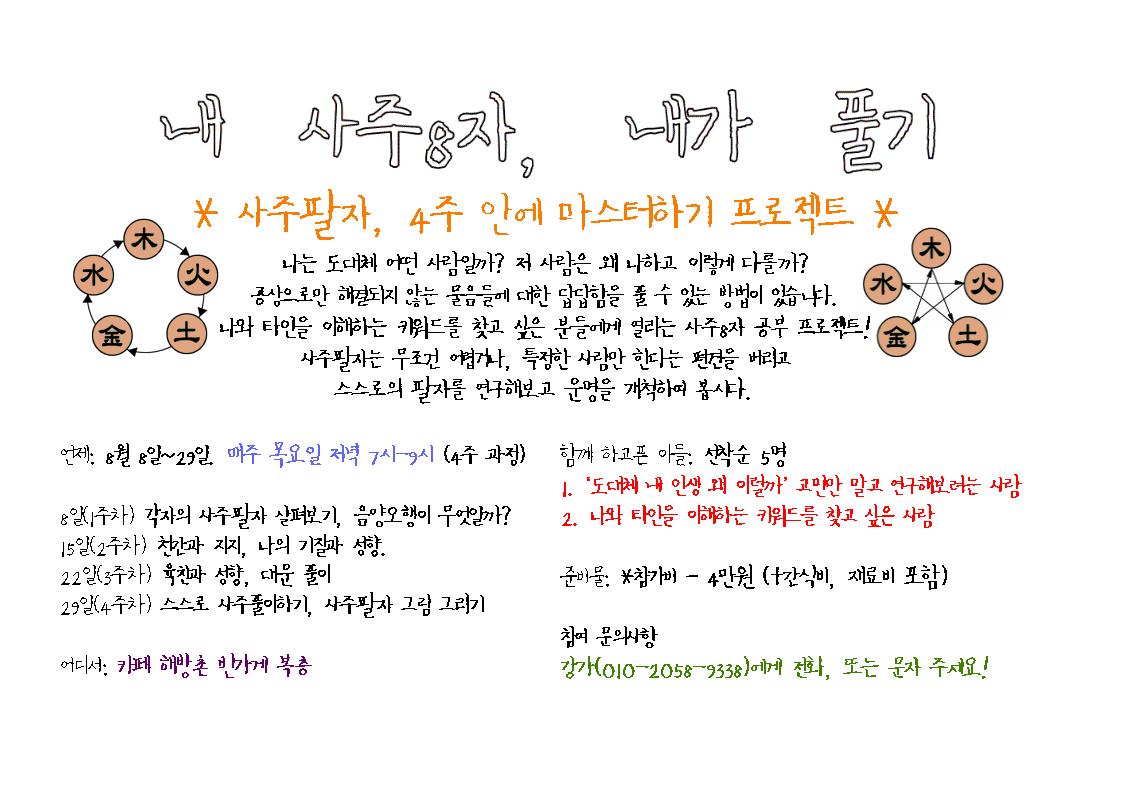 내 사주8자, 내가 풀기
* 사주팔자, 4주 안에 마스터하기 프로젝트 *
木
火
土
金
水
나는 도대체 어떤 사람일까? 저 사람은 왜 나하고 이렇게 다를까?
공상으로만 해결되지 않는 물음들에 대한 답답함을 풀 수 있는 방법이 있습니다.
나와 타인을 이해하는 키워드를 찾고 싶은 분들에게 열리는 사주8자 공부 프로젝트!
사주팔자는 무조건 어렵거나, 특정한 사람만 한다는 편견을 버리고
스스로의 팔자를 연구해보고 운명을 개척하여 봅시다.
木
火
土
金
水
언제: 8월 8일~29일. 매주 목요일 저녁 7시-9시 (4주 과정)
8일(1주차) 각자의 사주팔자 살펴보기, 음양오행이 무엇일까?
15일(2주차) 천간과 지지, 나의 기질과 성향.
22일(3주차) 육친과 성향, 대운 풀이
29일(4주차) 스스로 사주풀이하기, 사주팔자 그림 그리기
어디서: 카페 해방촌 빈가게 복층
함께 하고픈 이들: 선착순 5명
1. '도대체 내 인생 왜 이럴까' 고민만 말고 연구해보려는 사람
2. 나와 타인을 이해하는 키워드를 찾고 싶은 사람
준비물: *참가비 - 4만원 (+간식비, 재료비 포함)
참여 문의사항
강가(010-2058-9338)에게 전화, 또는 문자 주세요!